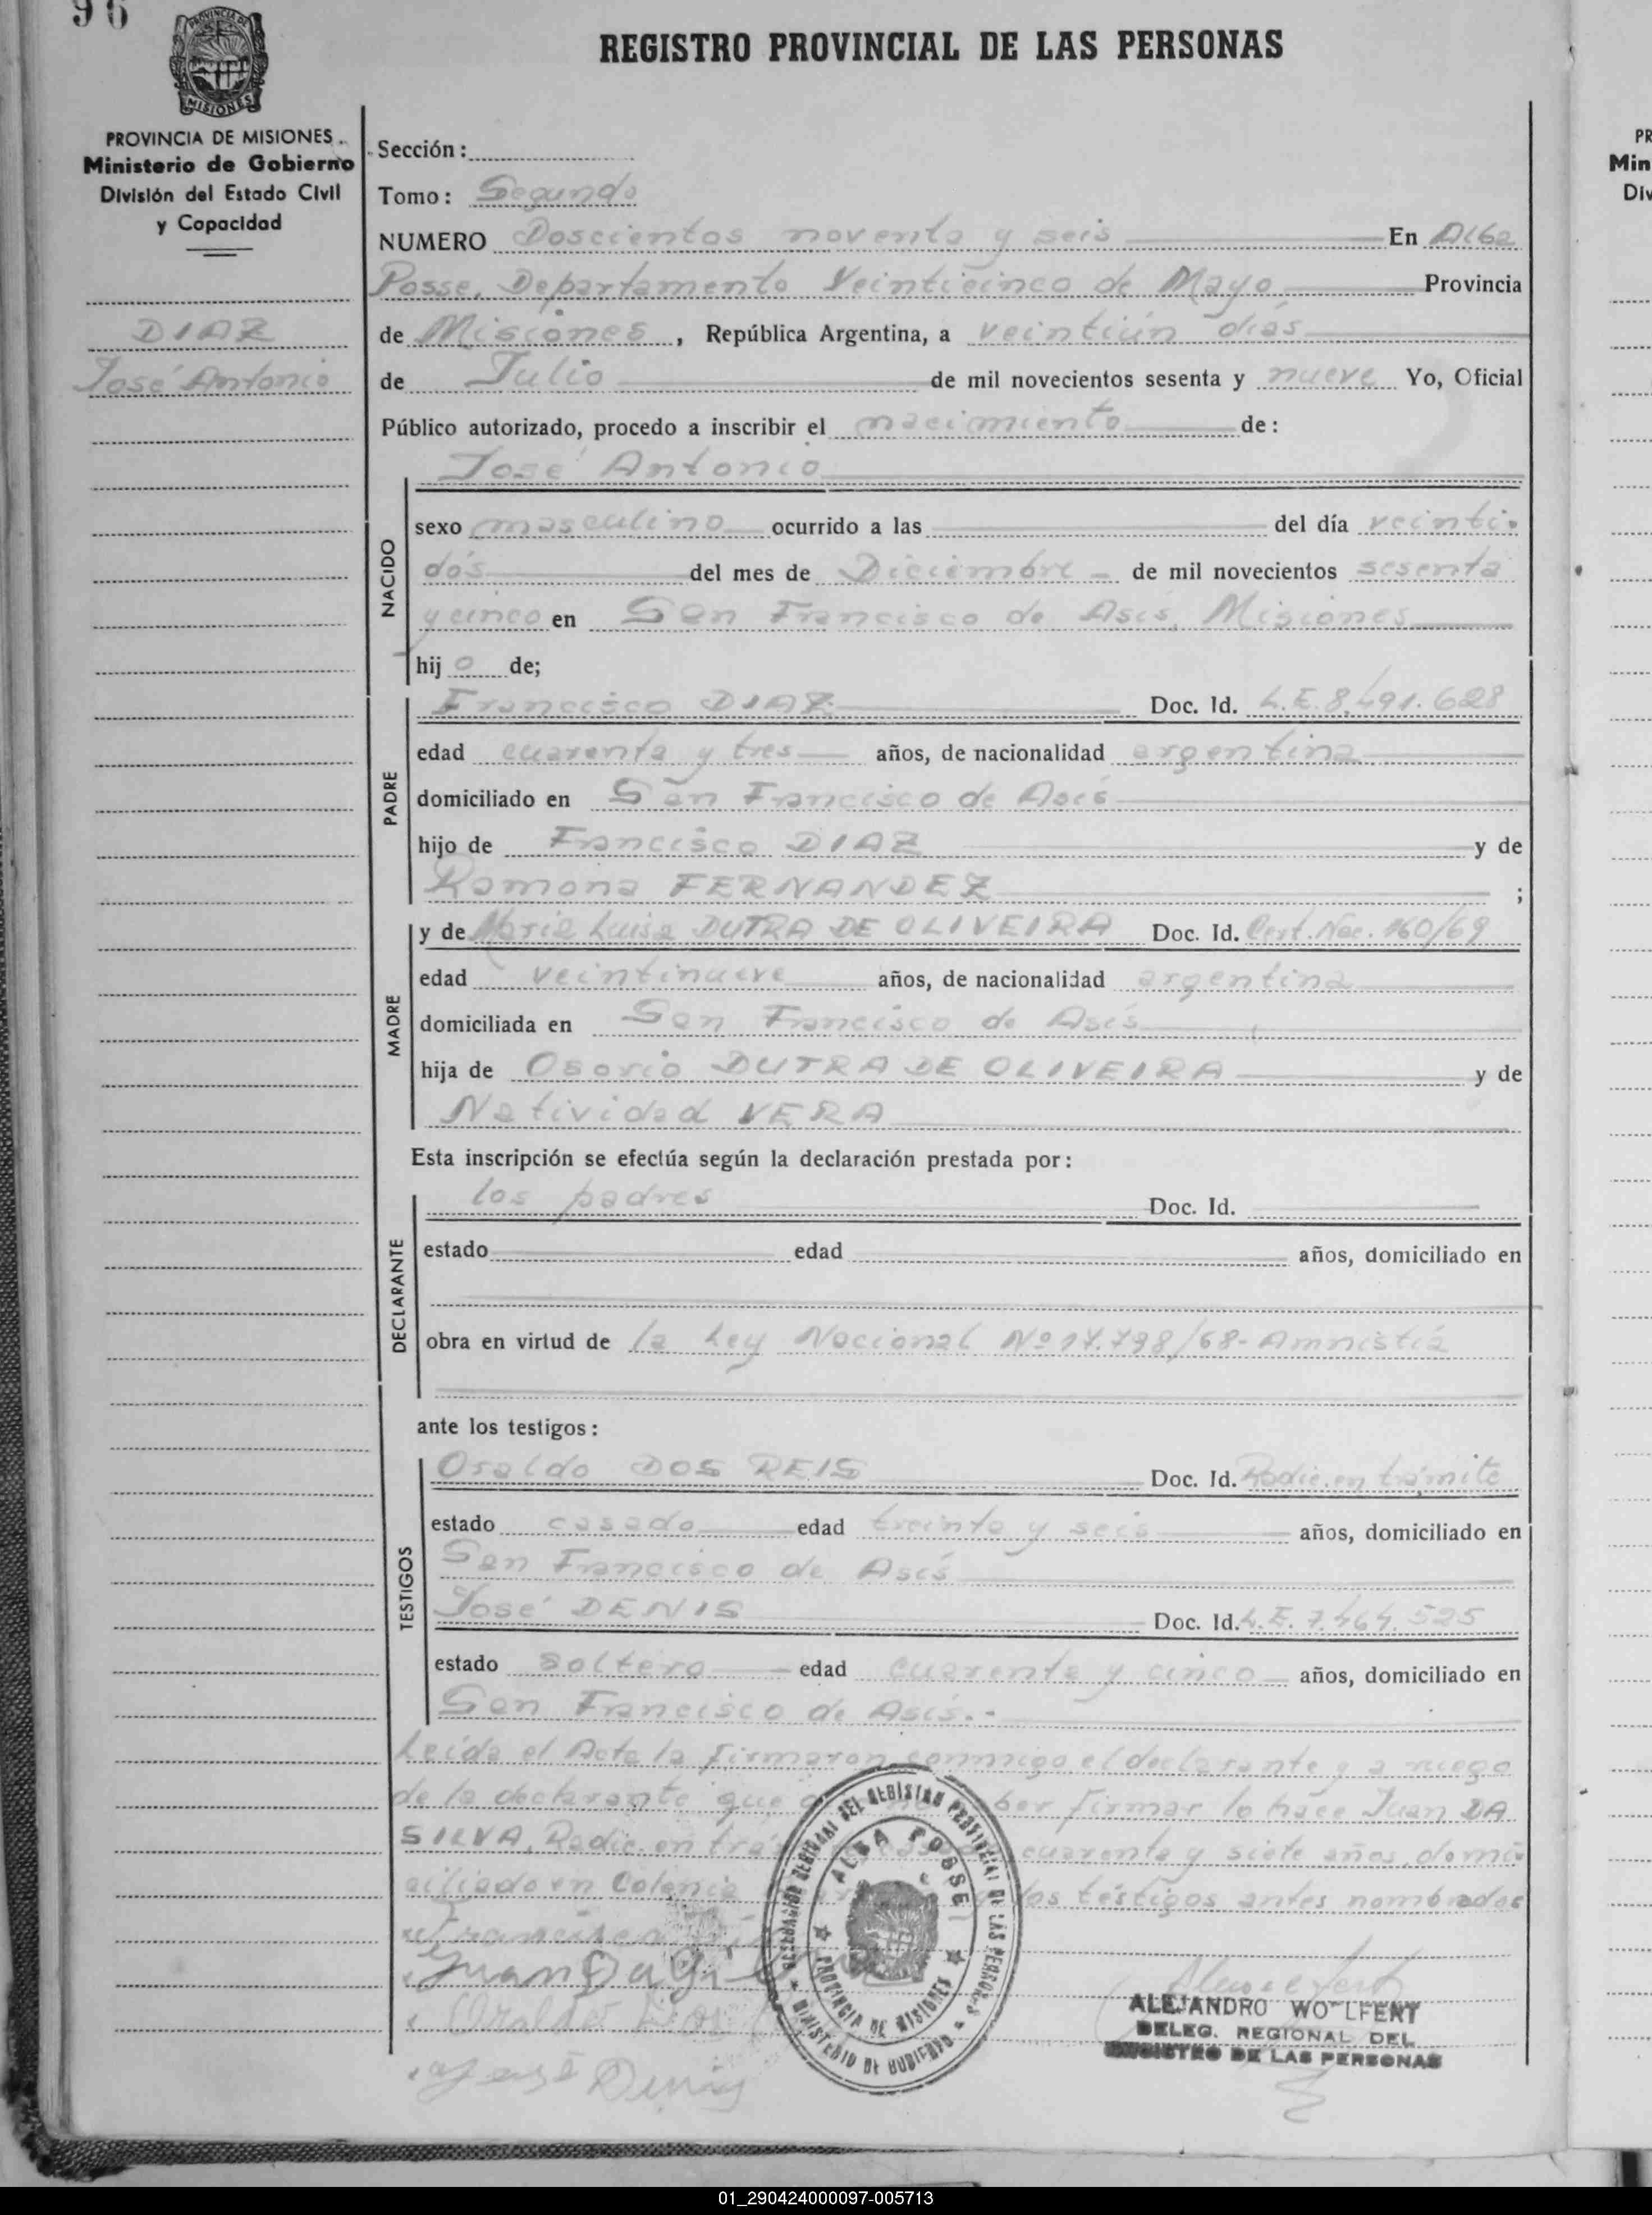 96
REGISTRO PROVINCIAL DE LAS PERSONAS
PROVINCIA DE MISIONES
Ministerio de Gobierno
División del Estado Civil
y Capacidad
DIAZ
José Antonio
Sección:
Tomo: Segundo
NUMERO Doscientos noventa y seis En Alba
Posse, Departamento Veinticinco de Mayo Provincia
de Misiones, República Argentina, a veintiún días
de Julio de mil novecientos sesenta y nueve Yo, Oficial
Público autorizado, procedo a inscribir el nacimiento de:
José Antonio
NACIDO
sexo masculino ocurrido a las del día veinti-
dós del mes de Diciembre de mil novecientos sesenta
y cinco en San Francisco de Asís, Misiones
hijo de;
PADRE
Francisco DIAZ Doc. Id. L.E. 8.491.628
edad cuarenta y tres años, de nacionalidad argentina
domiciliado en San Francisco de Asís
hijo de Francisco DIAZ y de
Ramona FERNANDEZ ;
MADRE
y de María Luisa DUTRA DE OLIVEIRA Doc. Id. Cert. Nac. 160/69
edad veintinueve años, de nacionalidad argentina
domiciliada en San Francisco de Asís
hija de Osorio DUTRA DE OLIVEIRA y de
Natividad VERA
Esta inscripción se efectúa según la declaración prestada por:
DECLARANTE
los padres Doc. Id.
estado edad años, domiciliado en
obra en virtud de la Ley Nacional Nº 17.798/68- Amnistía
ante los testigos:
TESTIGOS
Osaldo DOS REIS Doc. Id. Radic. en trámite
estado casado edad treinta y seis años, domiciliado en
San Francisco de Asís
José DENIS Doc. Id. L.E. 7.464.525
estado soltero edad cuarenta y cinco años, domiciliado en
San Francisco de Asís.-
Leída el Acta la firmaron conmigo el declarante y a ruego
de la declarante que ber firmar lo hace Juan DA
SILVA, Radic. en cuarenta y siete años, domi-
ciliado en Colonia los testigos antes nombrados
Francisco
Juan Da
Osaldo Dos
José Denis
DELEGACION REGIONAL DEL REGISTRO PROVINCIAL DE LAS PERSONAS
MINISTERIO DE GOBIERNO
ALBA POSSE
PROVINCIA DE MISIONES
ALEJANDRO WOLFERT
DELEG. REGIONAL DEL
REGISTRO DE LAS PERSONAS
PR
Min
Div
01_290424000097-005713